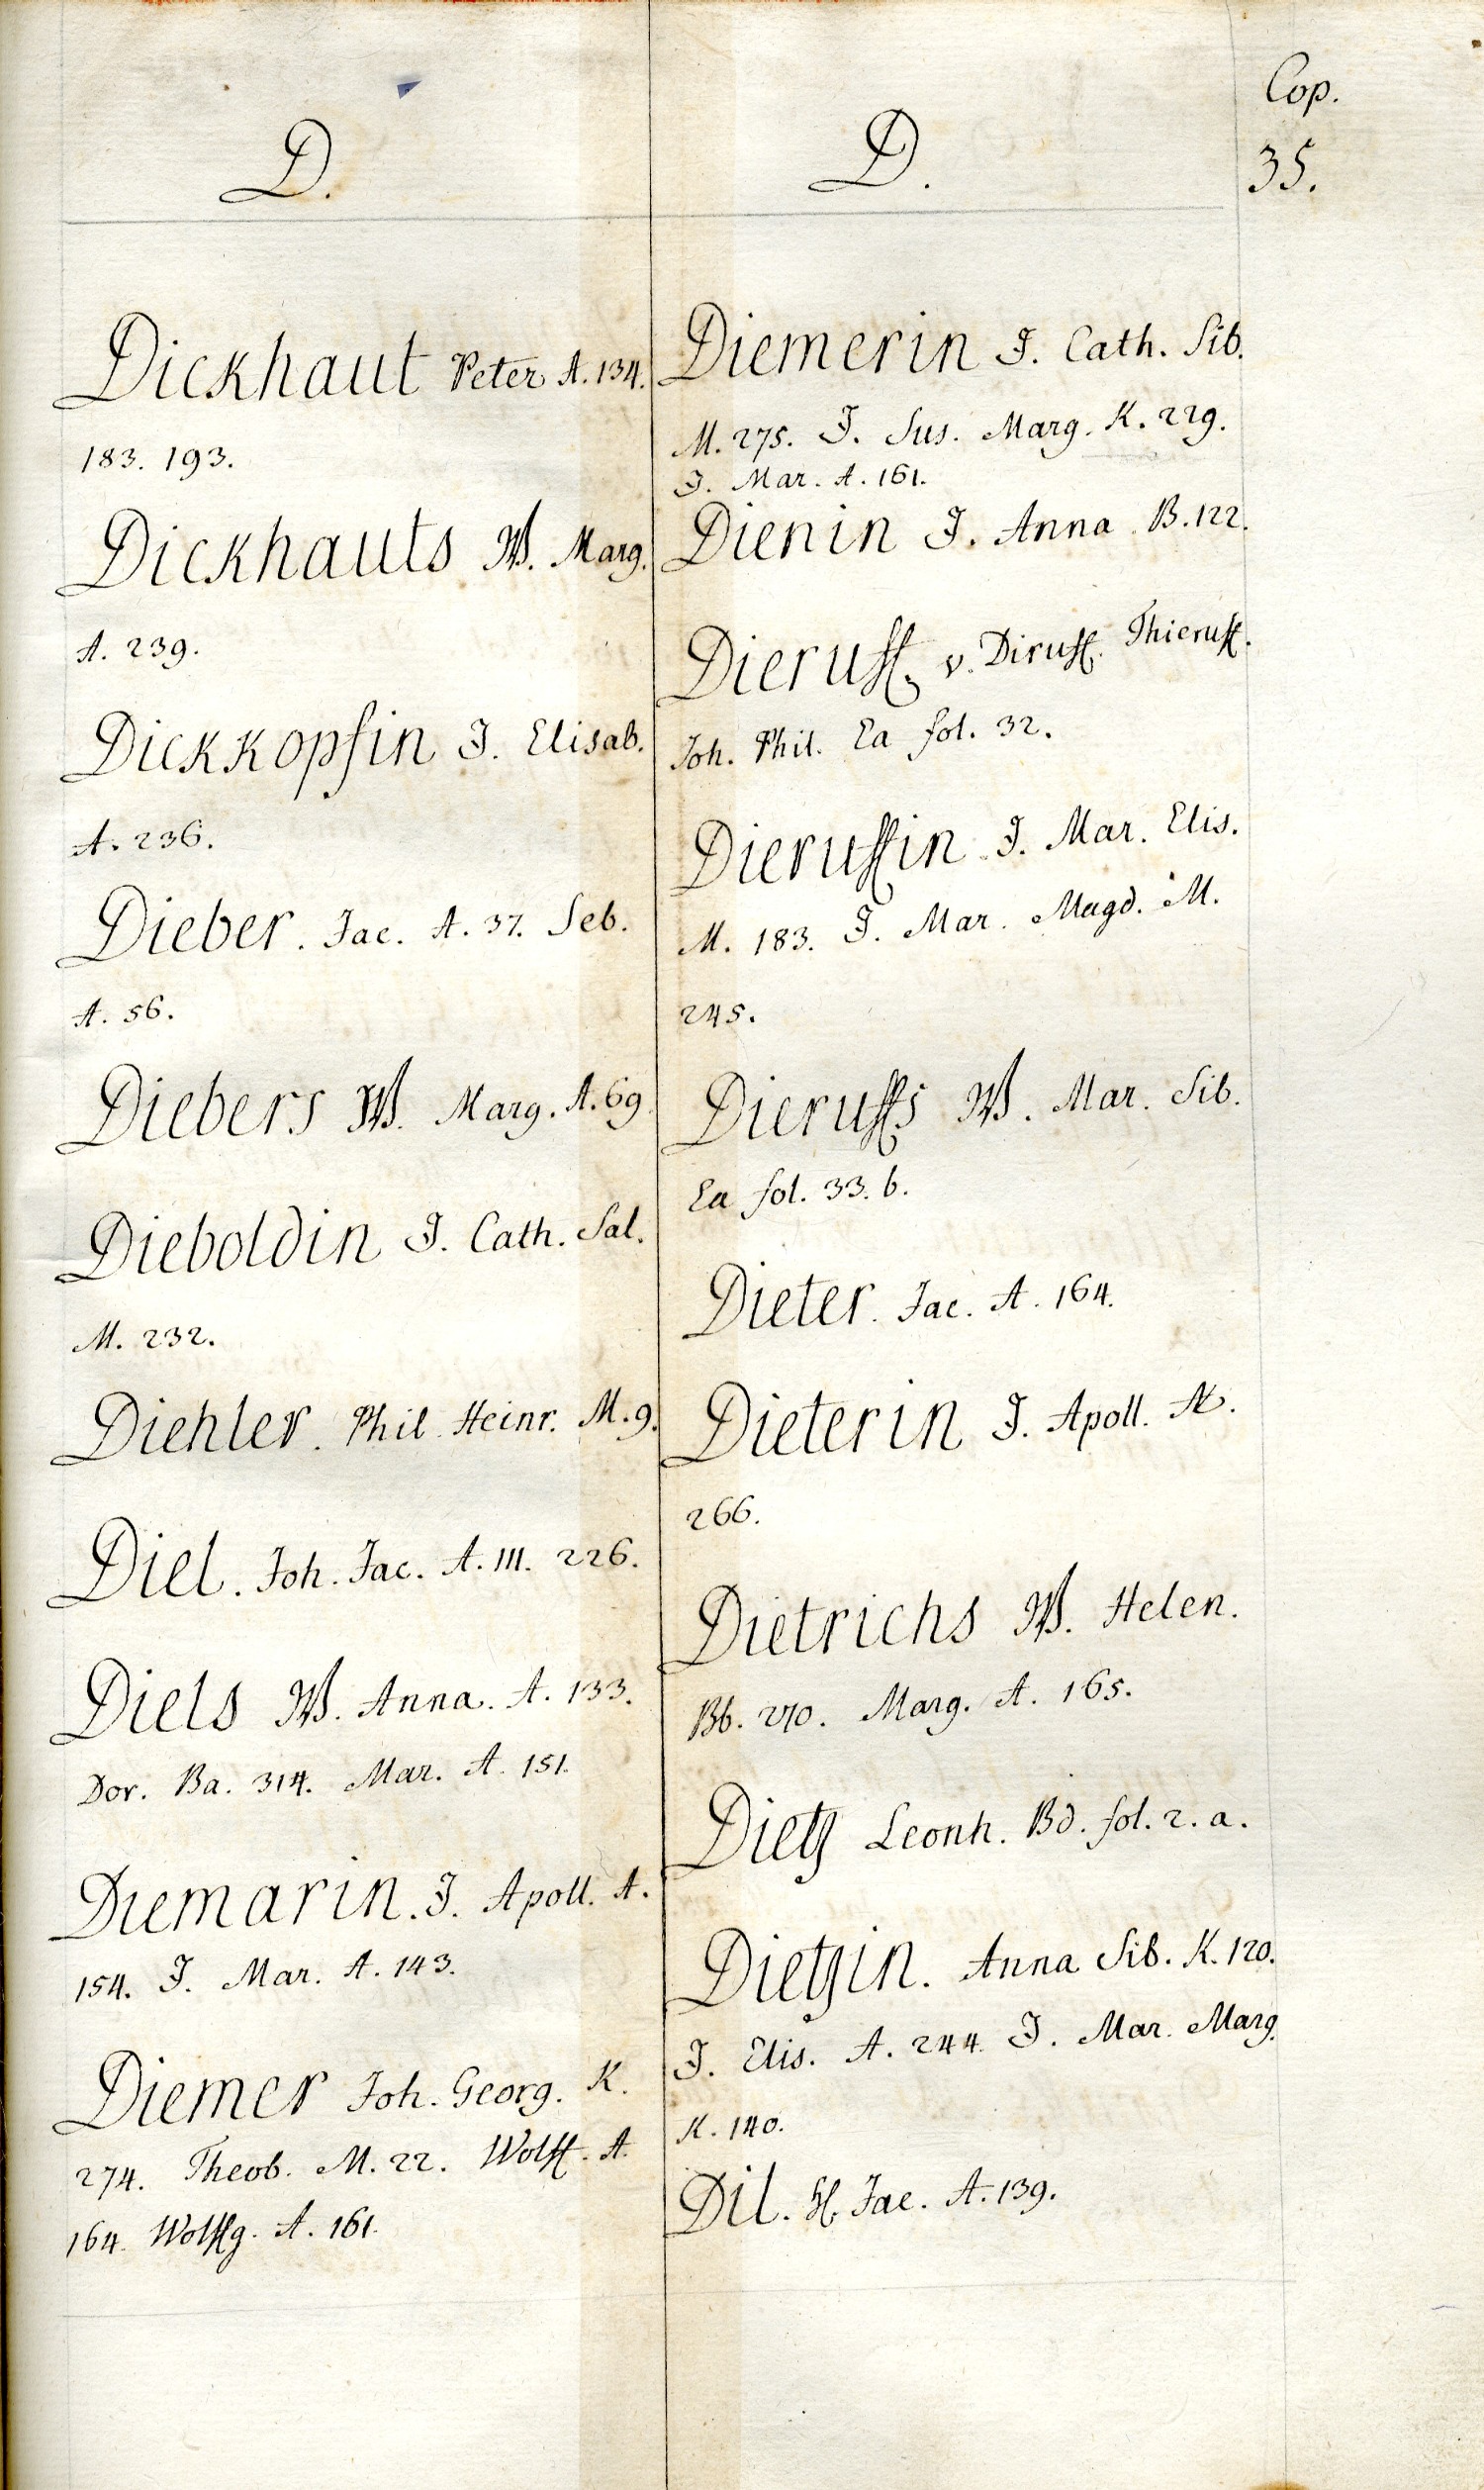 Cop.
35.
D.
Dickhaut Peter A. 134.
183. 193.
Dickhauts W. Marg.
A. 239.
Dickkopfin J. Elisab.
A. 236.
Dieber. Jac. A. 37. Seb.
A. 56.
Diebers W. Marg. A. 69
Dieboldin J. Cath. Sal.
M. 232.
Diehler. Phil. Heinr. M. 9.
Diel. Joh. Jac. A. 111. 226.
Diels W. Anna. A. 133.
Dor. Ba. 314. Mar. A. 151.
Diemarin. J. Apoll. A.
154. J. Mar. A. 143.
Diemer Joh. Georg. K.
274. Theob. M. 22. Wolff. A.
164. Wolffg. A. 161.
D.
Diemerin J. Cath. Sib.
M. 275. J. Sus. Marg. K. 229.
J. Mar. A. 161.
Dienin J. Anna B. 122.
Dieruff. v. Diruff. Thieruff.
Joh. Phil. Ea fol. 32.
Dieruffin J. Mar. Elis.
M. 183. J. Mar. Magd. M.
245.
Dieruffs W. Mar. Sib.
Ea fol. 33. b.
Dieter. Jac. A. 164.
Dieterin J. Apoll.
266.
Dietrichs W. Helen.
Bb. 270. Marg. A. 165.
Dietz Leonh. Bd. fol. 2. a.
Dietzin. Anna Sib. K. 120.
J. Elis. A. 244. J. Mar. Marg.
K. 140.
Dil. H. Jac. A. 139.